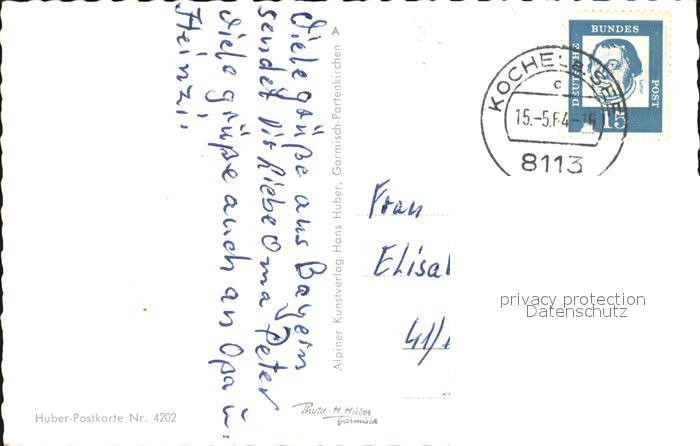 Viele grüße aus Bayern
sendet dir liebe Oma Peter
viele grüße auch an Opa u.
Heinzi.
A
Alpiner Kunstverlag Hans Huber, Garmisch-Partenkirchen
DEUTSCHE
BUNDES
POST
15
KOCHEL a. SEE
c
15.-5.64-16
8113
Frau
Elisa
41/
privacy protection
Datenschutz
Huber-Postkarte Nr. 4202
Photo-H. Huber
Garmisch